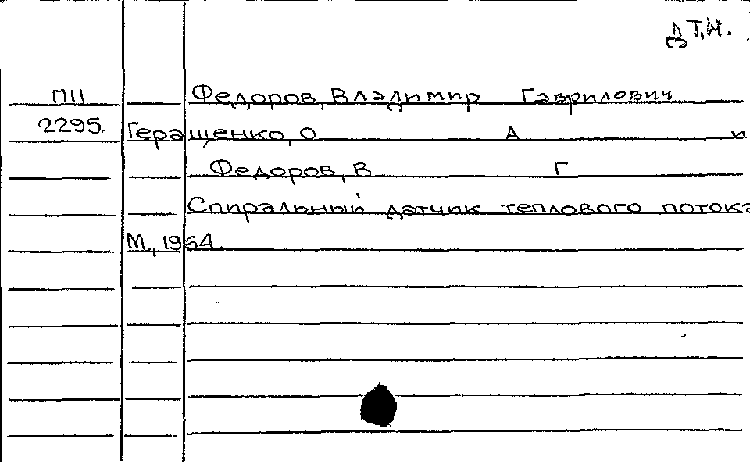 д.т.н.
П11 Федоров, Владимир Гаврилович
2295. Геращенко, О А и
Федоров, В Г
Спиральный датчик теплового потока
М., 1964.